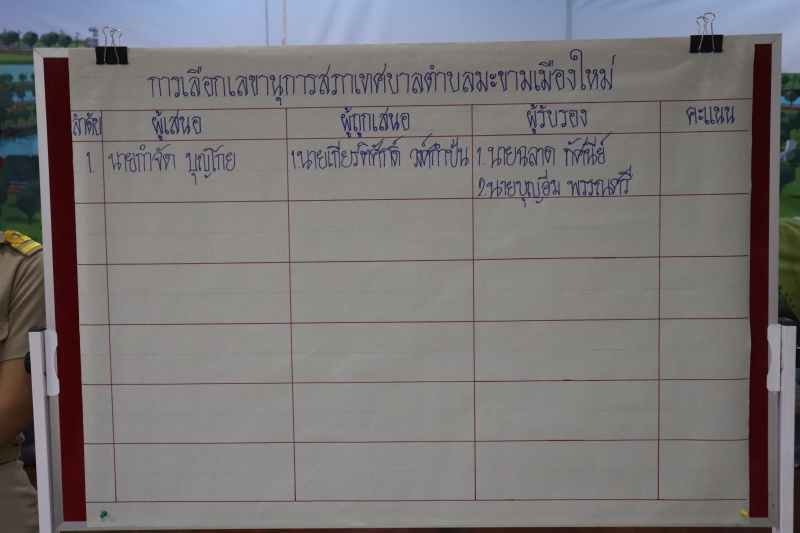 การเลือกเลขานุการสภาเทศบาลตำบลมะขามเมืองใหม่
ลำดับ ผู้เสนอ ผู้ถูกเสนอ ผู้รับรอง คะแนน
1 นายกำจัด บุญโกย 1.นายเกียรติศักดิ์ วงศ์กำปั่น 1.นายฉลาด ทัศนีย์
2.นายบุญธีม พวรรณศรี